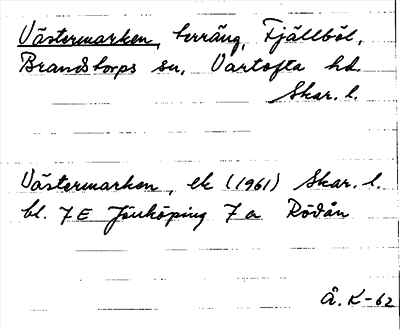 Västermarken, terräng, Fjällbol,
Brandstorps sn, Vartofta hd.
Skar. l.
Västermarken, ek (1961) Skar. l.
bl. 7E Jönköping 7a Rödån
Å. K-62